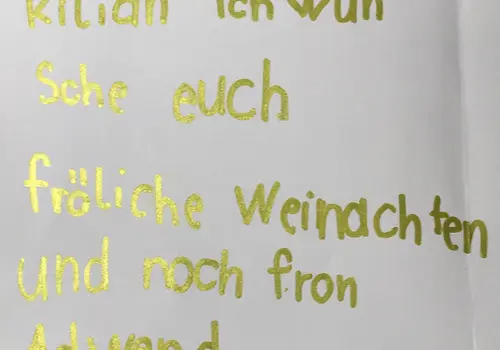 kilian ich wün
Sche euch
fröliche Weinachten
und noch fron
Adwend